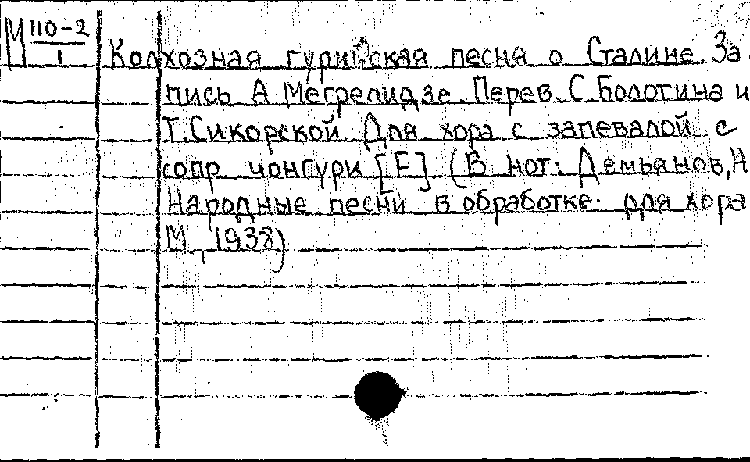 М 110-2
1
Колхозная гурийская песня о Сталине. За
пись А Мегрелидзе. Перев. С. Болотина и
Т. Сикорской Для хора с запевалой с
сопр чонгури [F] (В нот: Демьянов, Н
Народные песни в обработке для хора
М., 1938)